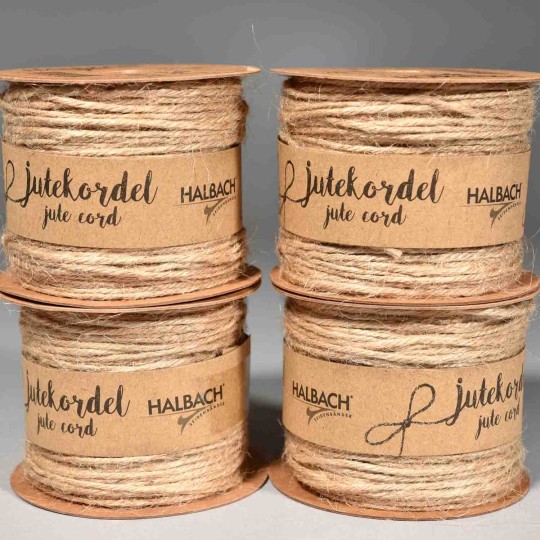 jutekordel
jute cord
HALBACH
SEIDENBÄNDER
jutekordel
jute cord
HALBACH
SEIDENBÄNDER
jutekordel
jute cord
HALBACH®
SEIDENBÄNDER
HALBACH®
SEIDENBÄNDER
jutekordel
jute cord